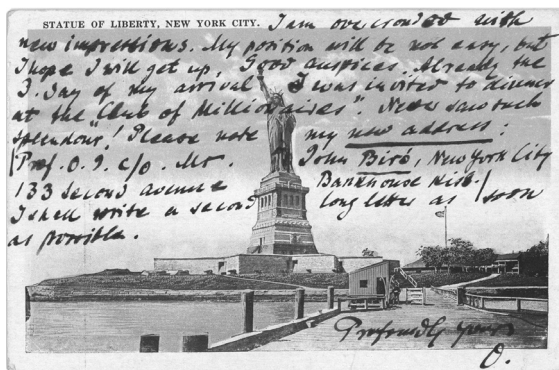 STATUE OF LIBERTY, NEW YORK CITY. I am overcrowded with
new impressions. My position will be not easy, but
I hope I will get up. Good auspices. Already the
I. day of my arrival I was invited to dinner
at the "Club of Millionaires". Never saw such
splendour! Please note my new address:
(Prof. O. J. c/o. Mr. John Biró, New York City
133 Second Avenue Bankhouse Kiss.)
I shall write a second long letter as soon
as possible.
Profoundly yours
O.